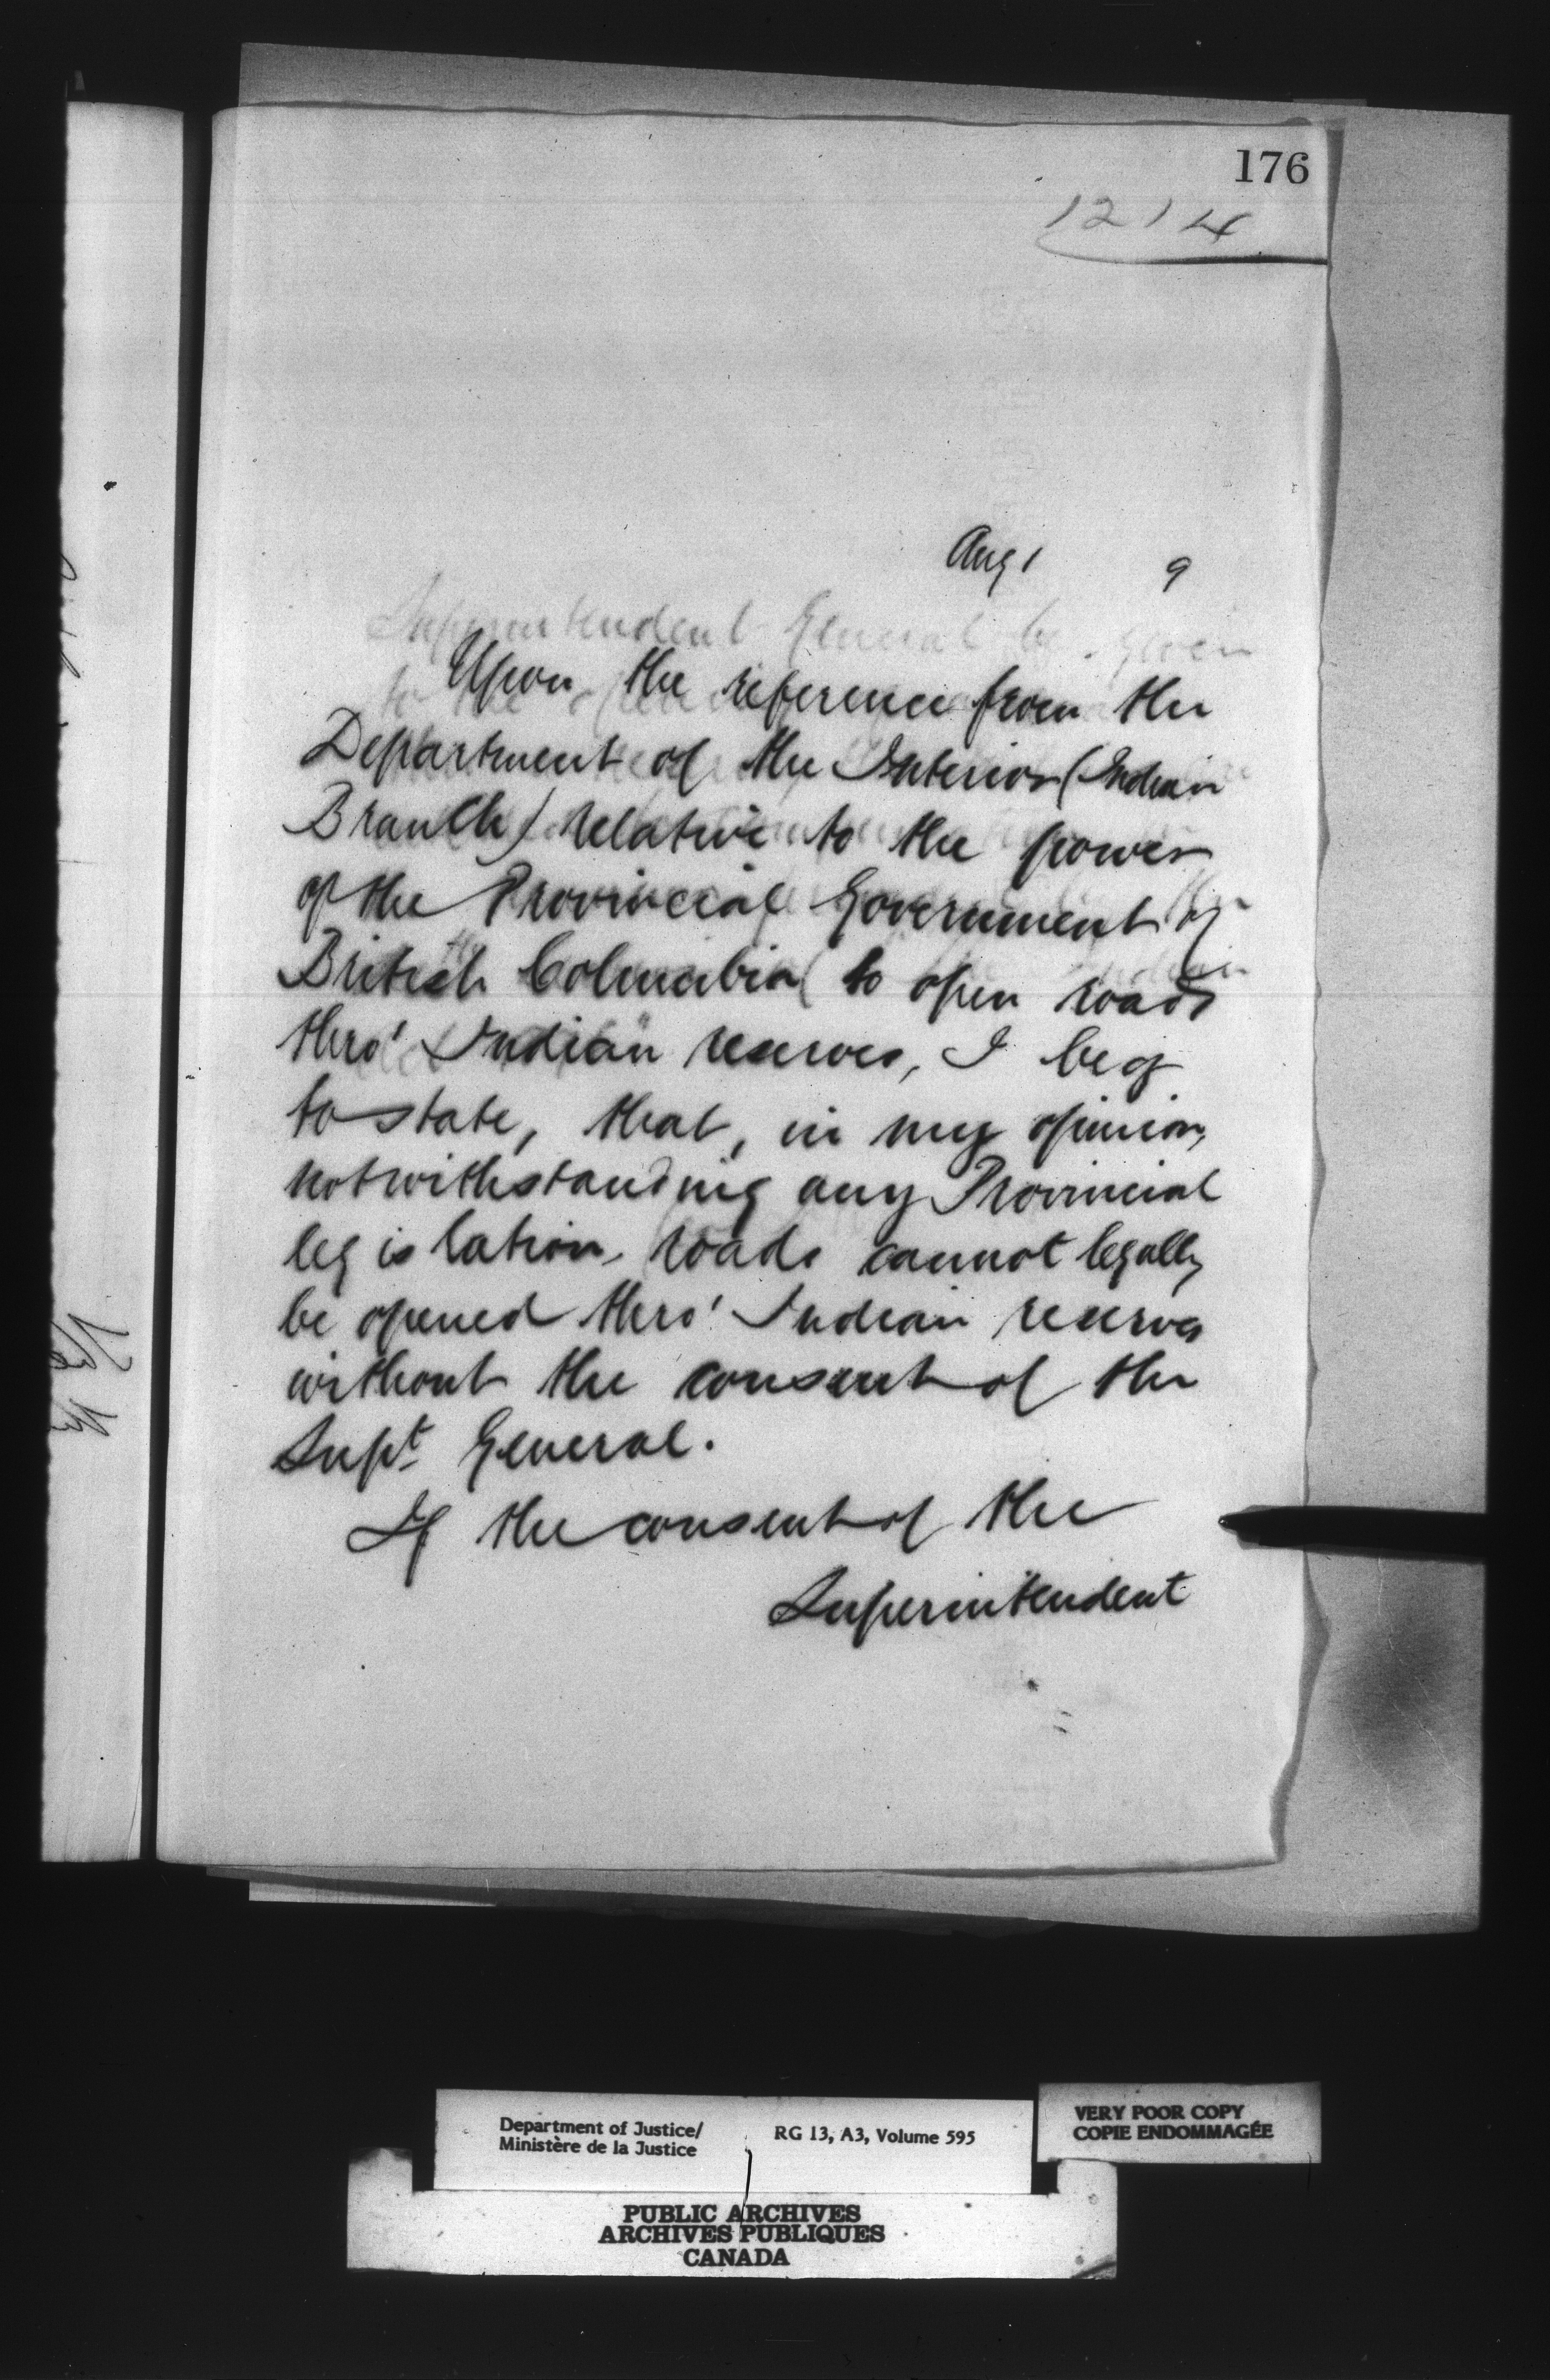 176
1214
Aug 1 9
Superintendent General be given
to the
Upon the reference from the
Department of the Interior (Indian
Branch) relative to the power
of the Provincial Government of
British Columbia to open roads
thro' Indian reserves, I beg
to state, that, in my opinion,
notwithstanding any Provincial
legislation, roads cannot legally
be opened thro' Indian reserves
without the consent of the
Supt General.
If the consent of the
Superintendent
Department of Justice/
Ministère de la Justice
RG 13, A3, Volume 595
VERY POOR COPY
COPIE ENDOMMAGÉE
PUBLIC ARCHIVES
ARCHIVES PUBLIQUES
CANADA